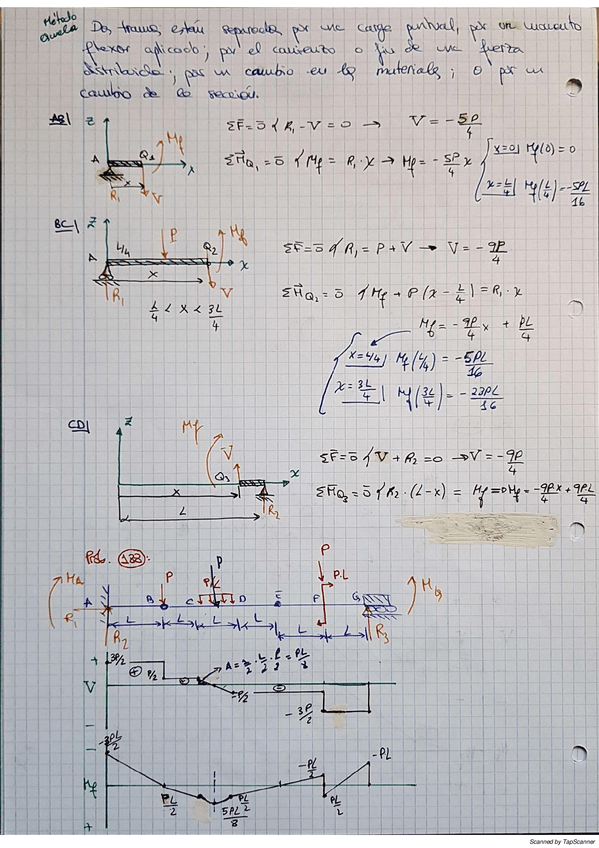 Método
Dos tramos están separados por una carga puntual, por un momento
flexor aplicado; por el comienzo o fin de una fuerza
distribuida; por un cambio en los materiales; o por un
cambio de la sección.
AB|
z
A
Q1
Mf
x
R1
x
V
ΣF̄=0̄ { R1 - V = 0 → V = -5P/4
ΣM̄Q1 = 0̄ { Mf = R1 · x → Mf = -5P/4 x
x=0| Mf(0) = 0
x=L/4| Mf(L/4) = -5PL/16
BC|
z
A
L/4
P
Q2
Mf
x
x
R1
V
L/4 < x < 3L/4
ΣF̄=0̄ { R1 = P + V → V = -9P/4
ΣM̄Q2 = 0̄ { Mf + P(x - L/4) = R1 · x
Mf = -9P/4 x + PL/4
x = L/4| Mf(L/4) = -5PL/16
x = 3L/4| Mf(3L/4) = -23PL/16
CD|
z
Mf
V
Q3
x
x
L
R2
ΣF̄=0̄ { V + R2 = 0 → V = -9P/4
ΣM̄Q3 = 0̄ { R2 · (L-x) = Mf ⇒ Mf = -9Px/4 + 9PL/4
Prob. 133:
P
P
P
P/L
P·L
A
B
C
D
E
F
G
R1
R2
R3
L
L
L
L
L
L
+
3P/2
P/2
A = 1/2 · L/2 · P/2 = PL/8
V
-P/2
-3P/2
-
-
-3PL/2
-PL/2
-PL
Mf
PL/2
5PL/8
PL/2
PL/2
+
Scanned by TapScanner